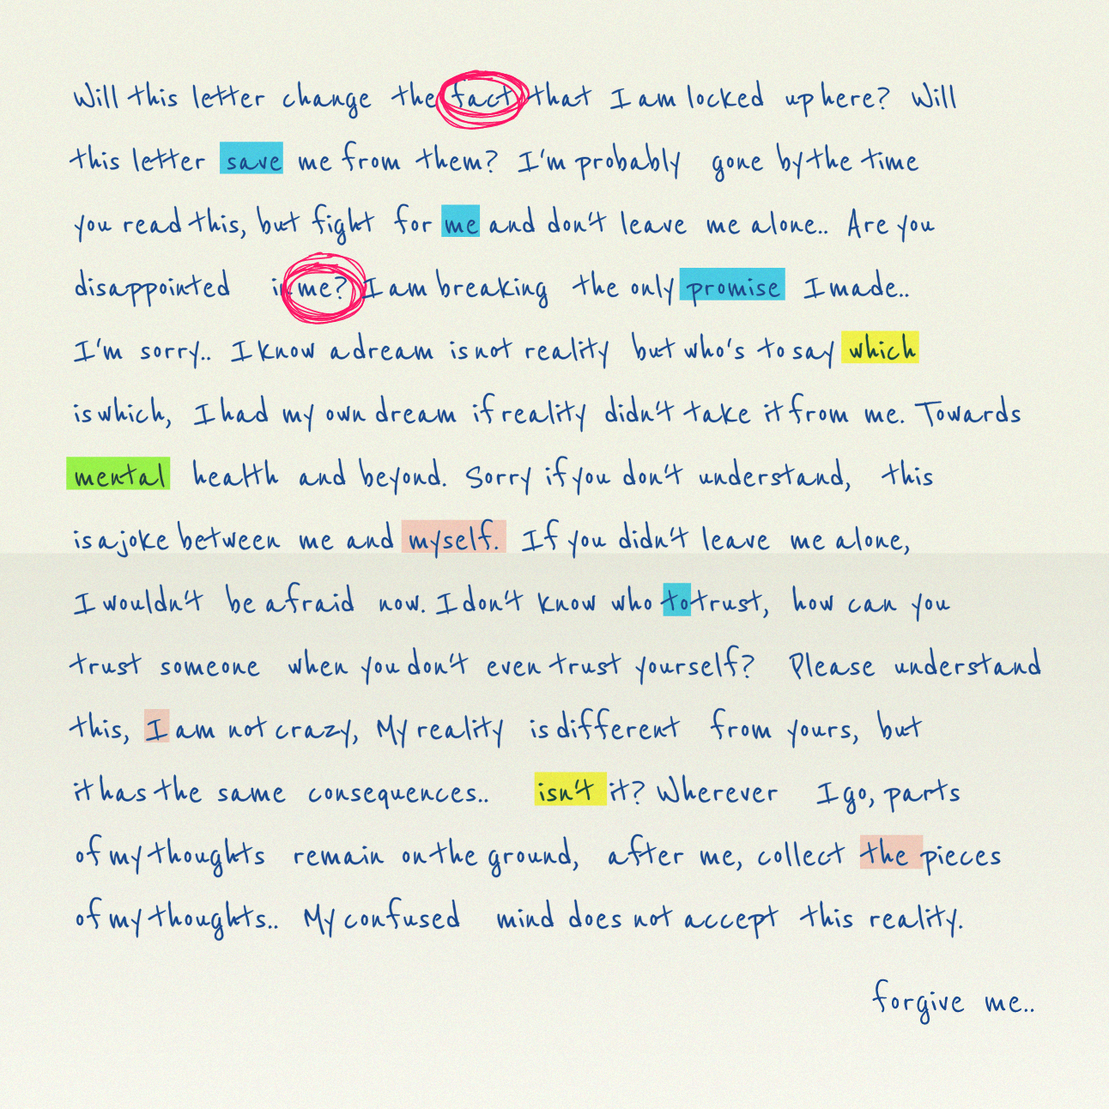 Will this letter change the fact that I am locked up here? Will
this letter save me from them? I'm probably gone by the time
you read this, but fight for me and don't leave me alone.. Are you
disappointed in me? I am breaking the only promise I made..
I'm sorry.. I know a dream is not reality but who's to say which
is which, I had my own dream if reality didn't take it from me. Towards
mental health and beyond. Sorry if you don't understand, this
is a joke between me and myself. If you didn't leave me alone,
I wouldn't be afraid now. I don't know who to trust, how can you
trust someone when you don't even trust yourself? Please understand
this, I am not crazy, My reality is different from yours, but
it has the same consequences.. isn't it? Wherever I go, parts
of my thoughts remain on the ground, after me, collect the pieces
of my thoughts.. My confused mind does not accept this reality.
forgive me..